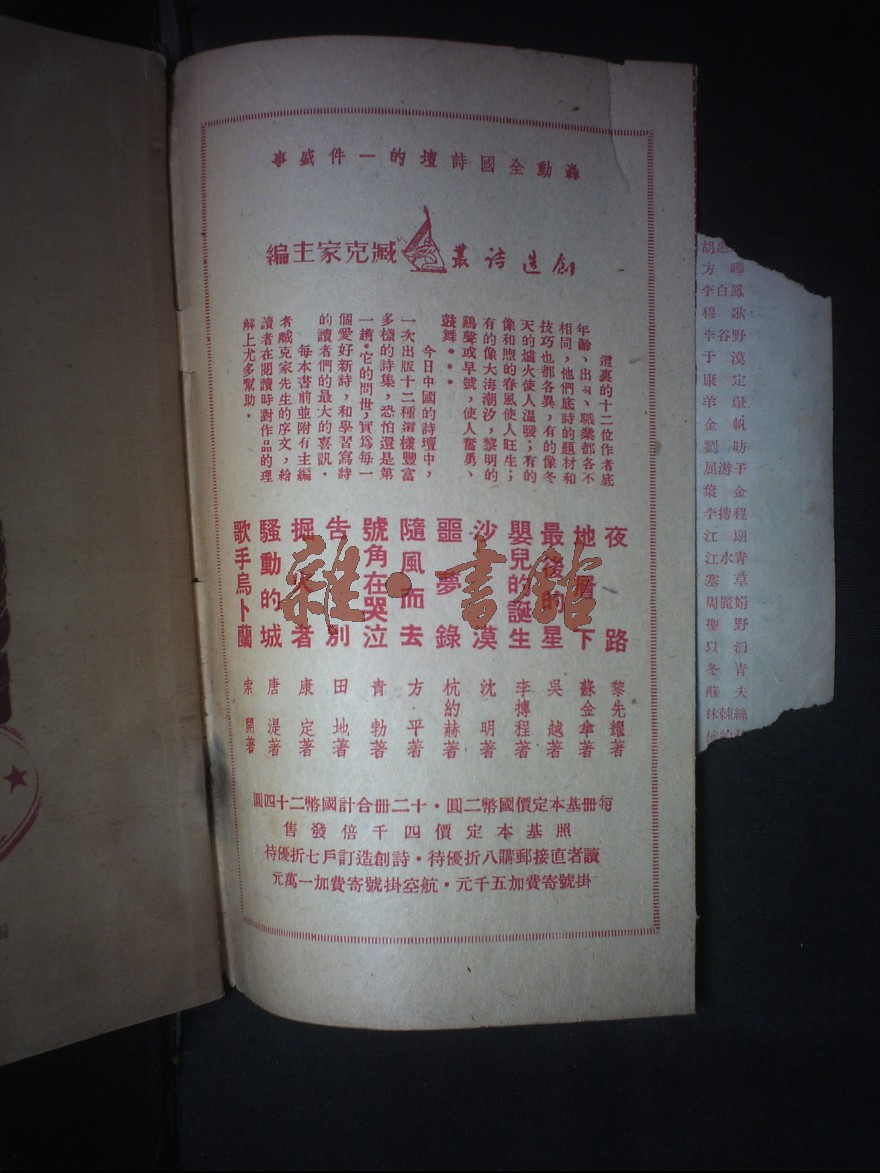 轟動全國詩壇的一件盛事
創造詩叢 臧克家主編
這裏的十二位作者底
年齡、出身、職業都各不
相同，他們底詩的題材和
技巧也都各異，有的像冬
天的爐火使人溫暖；有的
像和煦的春風使人旺生；
有的像大海潮汐，黎明的
鷄聲或早號，使人奮勇、
鼓舞・・・
今日中國的詩壇中，
一次出版十二種這樣豐富
多樣的詩集，恐怕還是第
一趟・它的問世，實爲每一
個愛好新詩，和學習寫詩
的讀者們的最大的喜訊・
每本書前並附有主編
者臧克家先生的序文，給
讀者在閱讀時對作品的理
解上尤多幫助・
夜路 黎先耀著
地層下 蘇金傘著
最後的星 吳越著
嬰兒的誕生 李摶程著
沙漠 沈明著
噩夢錄 杭約赫著
隨風而去 方平著
號角在哭泣 青勃著
告別 田地著
掘火者 康定著
騷動的城 唐湜著
歌手烏卜蘭 索開著
每冊基本定價國幣二圓・十二冊合計國幣二十四圓
照基本定價四千倍發售
讀者直接郵購八折優待・詩創造訂戶七折優待
掛號寄費加五千元・航空掛號寄費加一萬元
雜・書館
方曄
李白鳳
穆歌
李谷野
于漠
康定
羊翬
金帆
劉昉
屈游子
葉金
李摶程
江水青
蹇草
周麗娟
聖野
以滔
冬青
蘇夫
林棘絲